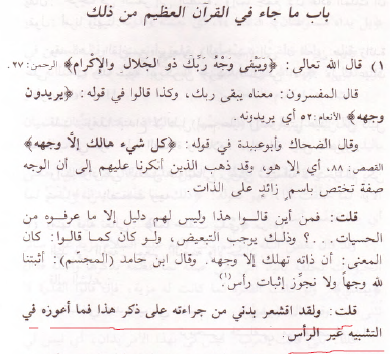 باب ما جاء في القرآن العظيم من ذلك
١) قال الله تعالى: ﴿وَيَبْقى وَجْهُ رَبِّكَ ذو الجَلال والإكرام﴾ الرحمن: ٢٧.
قال المفسرون: معناه يبقى ربك، وكذا قالوا في قوله: ﴿يريدون
وجهه﴾ الأنعام: ٥٢ أي يريدونه.
وقال الضحاك وأبو عبيدة في قوله: ﴿كل شيء هالك إلّا وجهه﴾
القصص: ٨٨، أي إلا هو، وقد ذهب الذين أنكرنا عليهم إلى أن الوجه
صفة تختص باسمٍ زائدٍ على الذات.
قلت: فمن أين قالوا هذا وليس لهم دليل إلا ما عرفوه من
الحسيات...؟ وذلك يوجب التبعيض، ولو كان كما قالوا: كان
المعنى: أن ذاته تهلك إلا وجهه. وقال ابن حامد (المجسّم): أثبتنا
لله وجهاً ولا نجوّز إثبات رأس(١).
قلت: ولقد اقشعر بدني من جراءته على ذكر هذا فما أعوزه في
التشبيه غير الرأس.